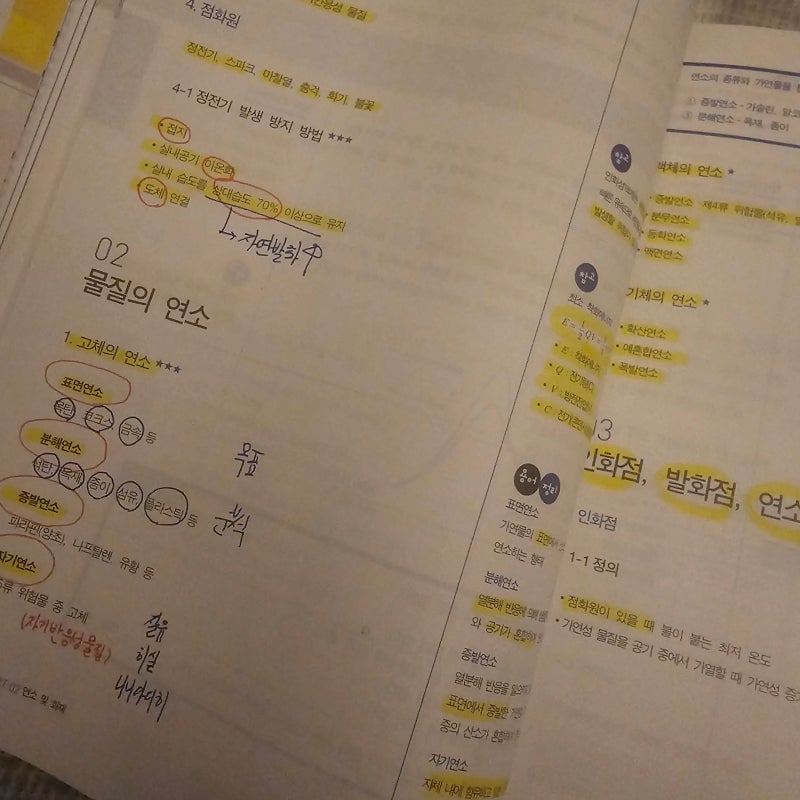 4. 점화원
정전기, 스파크, 마찰열, 충격, 화기, 불꽃
4-1 정전기 발생 방지 방법 ★★★
• 접지
• 실내공기 이온화
• 실내 습도를 상대습도 70% 이상으로 유지
• 도체 연결
↳ 자연발화 ↑
02
물질의 연소
1. 고체의 연소 ★★★
표면연소
목탄, 코크스, 금속 등
분해연소
석탄, 목재, 종이, 섬유, 플라스틱 등
증발연소
파라핀(양초), 나프탈렌, 유황 등
자기연소
위험물 중 고체
(자기반응성물질)
질유
히실
니니아디히
연소 및 화재
참고
참고
E = 1/2 QV =
용어 정리
표면연소
가연물의 표면에서
연소하는 형태
분해연소
열분해 반응에
와 공기가 혼합
증발연소
열분해 반응을
표면에서 증발한
중의 산소가 혼합
자기연소
자체 내에 함유하고
연소의 종류와 가연물을
① 증발연소 - 가솔린,
③ 분해연소 - 목재, 종이
액체의 연소 ★
• 증발연소 제4류 위험물(석유,
• 분무연소
• 등화연소
• 액면연소
기체의 연소 ★
• 확산연소
• 예혼합연소
• 폭발연소
인화점, 발화점, 연소
인화점
1-1 정의
• 점화원이 있을 때 불이 붙는 최저 온도
• 가연성 물질을 공기 중에서 가열할 때 가연성